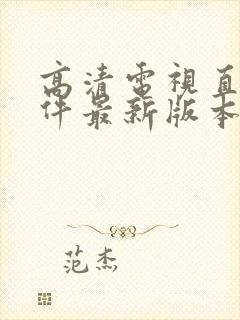 高清電視直
件最新版本
范杰